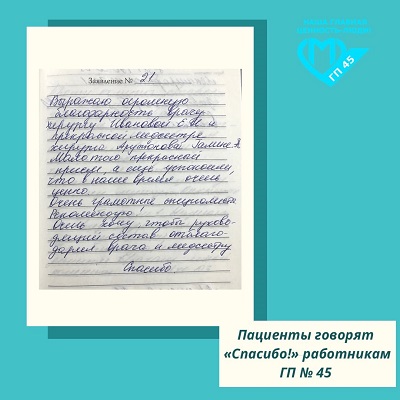 НАША ГЛАВНАЯ
ЦЕННОСТЬ-ЛЮДИ
ГП 45
Заявление № 21
Выражаю огромную
благодарность врачу-
хирургу Ивановой Е.Н и
прекрасной медсестре
хирурга Арутюнова Галине А
Молотого прекрасный
прием, а еще успокоили,
что в наше время очень
ценно.
Очень грамотные специалисты
Рекомендую!
Очень хочу чтобы руково-
дящий состав отблаго-
дарил врача и медсестру
Спасибо
Пациенты говорят
«Спасибо!» работникам
ГП № 45